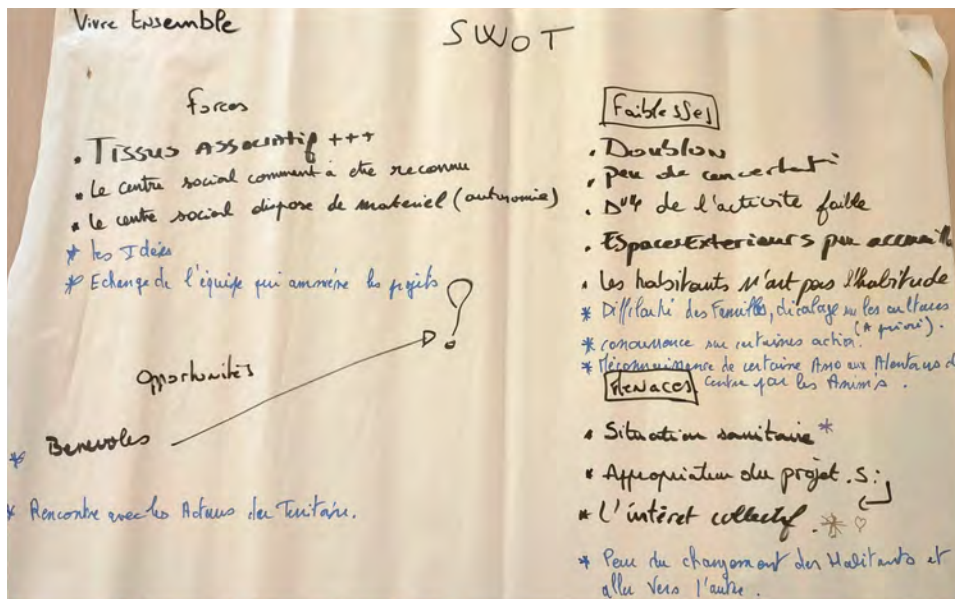 Vivre Ensemble
SWOT
forces
. Tissus Associatif +++
. Le centre social comment à etre reconnu
. le centre social dispose de materiel (autonomie)
* les Idées
* Echange de l'équipe qui ammène les projets
?
Opportunités
* Benevoles
* Rencontre avec les Acteurs du Territoire.
Faiblesses
. Doublon
. peu de concertati
. D de l'activité faible
. Espaces Exterieurs peu accueill
. Les habitants n'ont pas l'habitude
* Difficulté des Familles, décalage sur les cultures
(A priori).
* concurrence sur certaines action.
* Méconnaissance de certaine Asso aux Alentours d
centre par les Anim's.
Menaces
. Situation sanitaire *
* Appropriation du projet. S:
* L'intéret collectif.
* Peur du changement des Habitants et
aller vers l'autre.